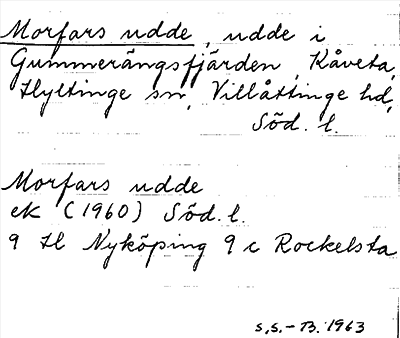 Morfars udde, udde i
Gummerängsfjärden, Kåveta,
Hyltinge sn, Villåttinge hd,
Söd. l.
Morfars udde
ek (1960) Söd. l.
9 H Nyköping 9 c Rockelsta
S.S.-B. 1963